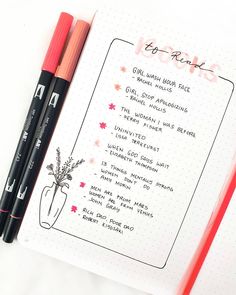 BOOKS
to Read
GIRL WASH YOUR FACE
- RACHEL HOLLIS
GIRL STOP APOLOGIZING
- RACHEL HOLLIS
THE WOMAN I WAS BEFORE
- KERRY FISHER
UNINVITED
- LYSA TERKEURST
WHEN GOD SAYS WAIT
- ELIZABETH THOMPSON
13 THINGS MENTALLY STRONG
WOMEN DON'T DO
- AMY MORIN
MEN ARE FROM MARS
WOMEN ARE FROM VENUS
- JOHN GRAY
RICH DAD POOR DAD
- ROBERT KIYOSAKI